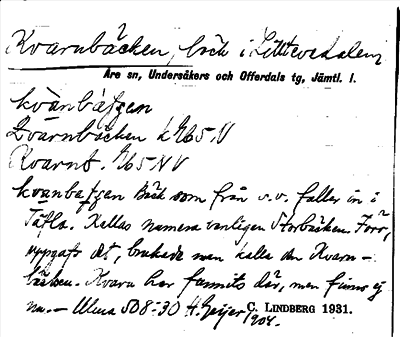 Kvarnbäcken, bäck i
Åre sn, Undersåkers och Offerdals tg, Jämtl. l.
Kvarnbäcken k 265 V
Kvarnb. 265 N V
Bäck som från v. faller in i
Täfla. Kallas numera vanligen Storbäcken. Förr,
uppgafs det, brukade man kalla den Kvarn-
bäcken. Kvarn har funnits där, men finns ej
nu. — Ulma 508:30 H. Geijer 1904.
C. LINDBERG 1931.